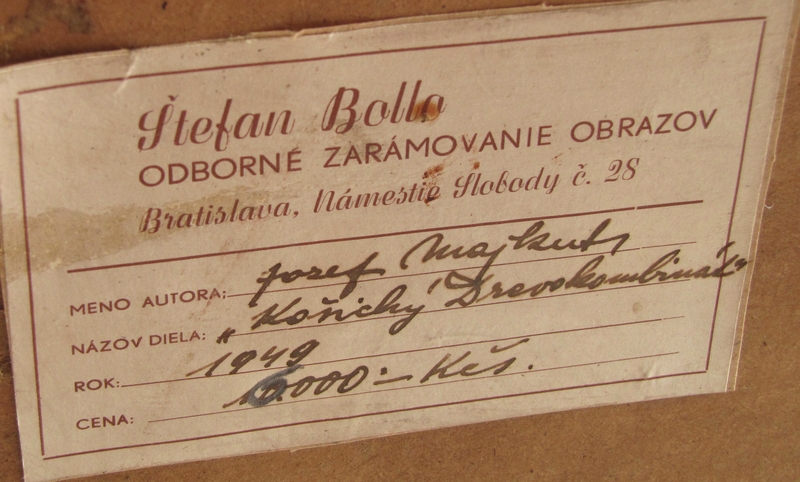 Štefan Bollo
ODBORNÉ ZARÁMOVANIE OBRAZOV
Bratislava, Námestie Slobody č. 28
MENO AUTORA: Jozef Majkut,
NÁZOV DIELA: „Košický Drevokombinát"
ROK: 1949
CENA: 10.000·– Kčs.